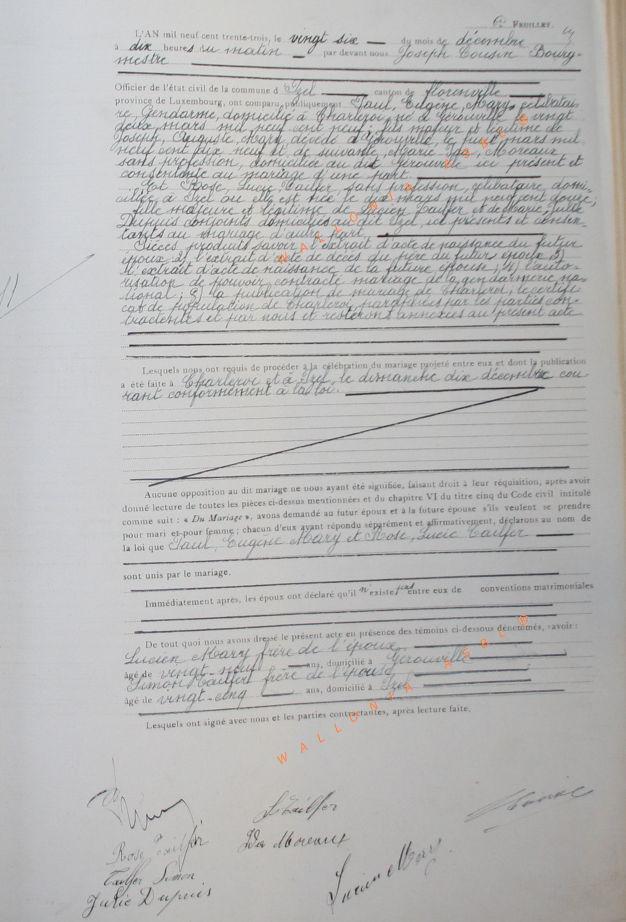 6e FEUILLET.
L'AN mil neuf cent trente-trois, le vingt six du mois de décembre
à dix heures du matin par devant nous Joseph Cousin Bourg-
mestre
Officier de l'état civil de la commune d'Izel canton de Florenville
province de Luxembourg, ont comparu publiquement Paul, Eugène, Mary, célibatai-
re, Gendarme, domicilié à Charleroi, né à Gérouville le vingt
deux mars mil neuf cent neuf, fils majeur et légitime de
Joseph, Auguste, Mary, décédé à Gérouville, le huit mars mil
neuf cent dix neuf et de suivante, Marie Ida, Moreaux
sans profession, domiciliée au dit Gérouville ici présent et
consentante au mariage d'une part.
Et Rose, Lucie Tailfer sans profession, célibataire, domi-
ciliée, à Izel où elle est née le dix mars mil neuf cent douze,
fille majeure et légitime de Lucien Tailfer et de Marie, Julie
Dupuis conjoints domiciliés au dit Izel, ici présents et consen-
tants au mariage d'autre part.
Pièces produits savoir: l'extrait d'acte de naissance du futur
époux 2) l'extrait d'acte de décès du père du futur époux 3)
l'extrait d'acte de naissance de la future épouse; 4) l'auto-
risation de pouvoir contracté mariage de la gendarmerie na-
tional; 5) la publication de mariage de Charleroi, le certifi-
cat de publication de Charleroi, paraphées par les parties con-
tractentes et par nous et resterons annexées au présent acte
Lesquels nous ont requis de procéder à la célébration du mariage projeté entre eux et dont la publication
a été faite à Charleroi et à Izel, le dimanche dix décembre cou-
rant conformément à la loi.
Aucune opposition au dit mariage ne nous ayant été signifiée, faisant droit à leur réquisition, après avoir
donné lecture de toutes les pièces ci-dessus mentionnées et du chapitre VI du titre cinq du Code civil intitulé
comme suit : « Du Mariage », avons demandé au futur époux et à la future épouse s'ils veulent se prendre
pour mari et pour femme ; chacun d'eux ayant répondu séparément et affirmativement, déclarons au nom de
la loi que Paul, Eugène Mary et Rose, Lucie Tailfer
sont unis par le mariage.
Immédiatement après, les époux ont déclaré qu'il n'existe pas entre eux de conventions matrimoniales
De tout quoi nous avons dressé le présent acte en présence des témoins ci-dessous dénommés, savoir :
Lucien Mary frère de l'époux
âgé de vingt-neuf ans, domicilié à Gérouville
Simon Tailfer frère de l'épouse
âgé de vingt-cinq ans, domicilié à Izel
Lesquels ont signé avec nous et les parties contractantes, après lecture faite.
WALLONIA ASBL
WALLONIA ASBL
L Tailfer
Rose Tailfer
Ida Moreaux
Tailfer Simon
Julie Dupuis
Lucien Mary